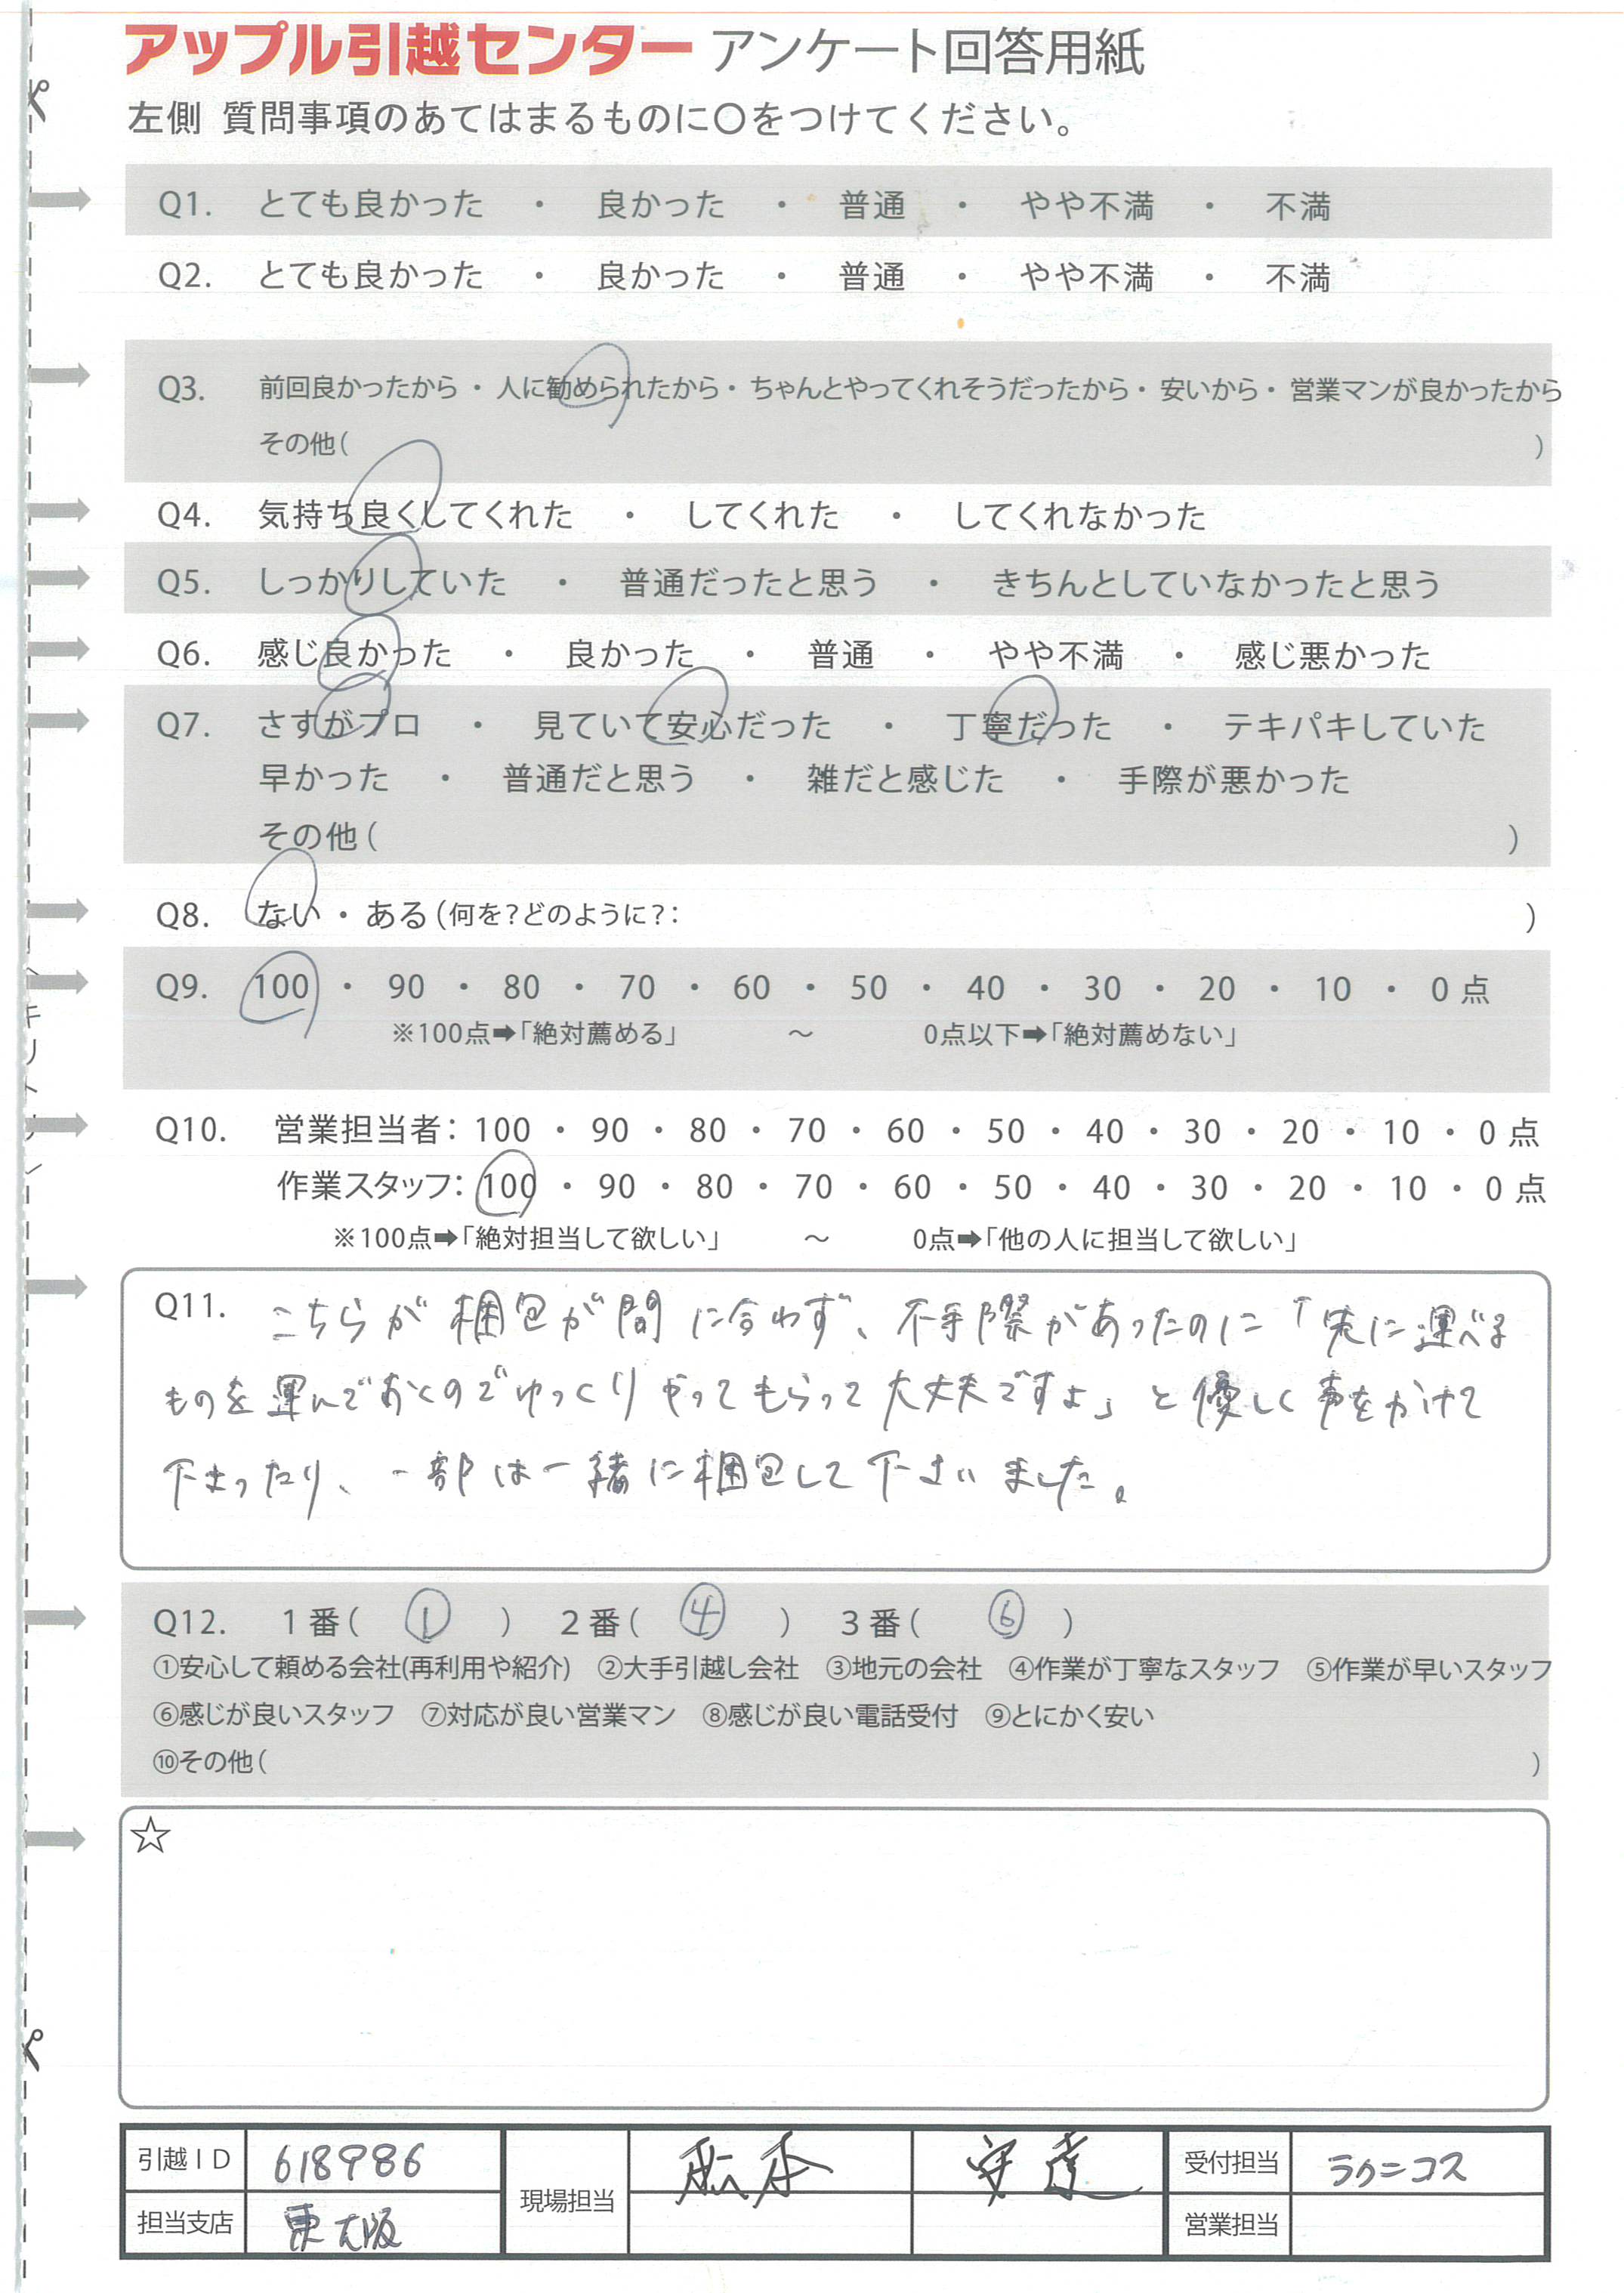 アップル引越センター アンケート回答用紙
左側 質問事項のあてはまるものに〇をつけてください。
Q1. とても良かった ・ 良かった ・ 普通 ・ やや不満 ・ 不満
Q2. とても良かった ・ 良かった ・ 普通 ・ やや不満 ・ 不満
Q3. 前回良かったから ・ 人に勧められたから ・ ちゃんとやってくれそうだったから ・ 安いから ・ 営業マンが良かったから
その他( )
Q4. 気持ち良くしてくれた ・ してくれた ・ してくれなかった
Q5. しっかりしていた ・ 普通だったと思う ・ きちんとしていなかったと思う
Q6. 感じ良かった ・ 良かった ・ 普通 ・ やや不満 ・ 感じ悪かった
Q7. さすがプロ ・ 見ていて安心だった ・ 丁寧だった ・ テキパキしていた
早かった ・ 普通だと思う ・ 雑だと感じた ・ 手際が悪かった
その他( )
Q8. ない ・ ある(何を?どのように?: )
Q9. 100 ・ 90 ・ 80 ・ 70 ・ 60 ・ 50 ・ 40 ・ 30 ・ 20 ・ 10 ・ 0 点
※100点➡「絶対薦める」 〜 0点以下➡「絶対薦めない」
キリトリ
Q10. 営業担当者: 100 ・ 90 ・ 80 ・ 70 ・ 60 ・ 50 ・ 40 ・ 30 ・ 20 ・ 10 ・ 0 点
作業スタッフ: 100 ・ 90 ・ 80 ・ 70 ・ 60 ・ 50 ・ 40 ・ 30 ・ 20 ・ 10 ・ 0 点
※100点➡「絶対担当して欲しい」 〜 0点➡「他の人に担当して欲しい」
Q11. こちらが梱包が間に合わず、不手際があったのに「先に運べる
ものを運んでおくのでゆっくりやってもらって大丈夫ですよ」と優しく声をかけて
下さったり、一部は一緒に梱包して下さいました。
Q12. 1番( ① ) 2番( ④ ) 3番( ⑥ )
①安心して頼める会社(再利用や紹介) ②大手引越し会社 ③地元の会社 ④作業が丁寧なスタッフ ⑤作業が早いスタッフ
⑥感じが良いスタッフ ⑦対応が良い営業マン ⑧感じが良い電話受付 ⑨とにかく安い
⑩その他( )
☆
引越ID 618986 現場担当 松本 安達 受付担当 ラクニコス
担当支店 東大阪 営業担当